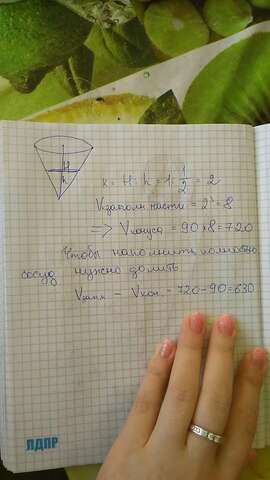 H
h
k = H : h = 1 : 1/2 = 2
Vзаполн части = 2³ = 8
=> Vконуса = 90 x 8 = 720
Чтобы наполнить полностью
сосуд нужно долить
Vзапл - Vкон. = 720 - 90 = 630
ЛДПР